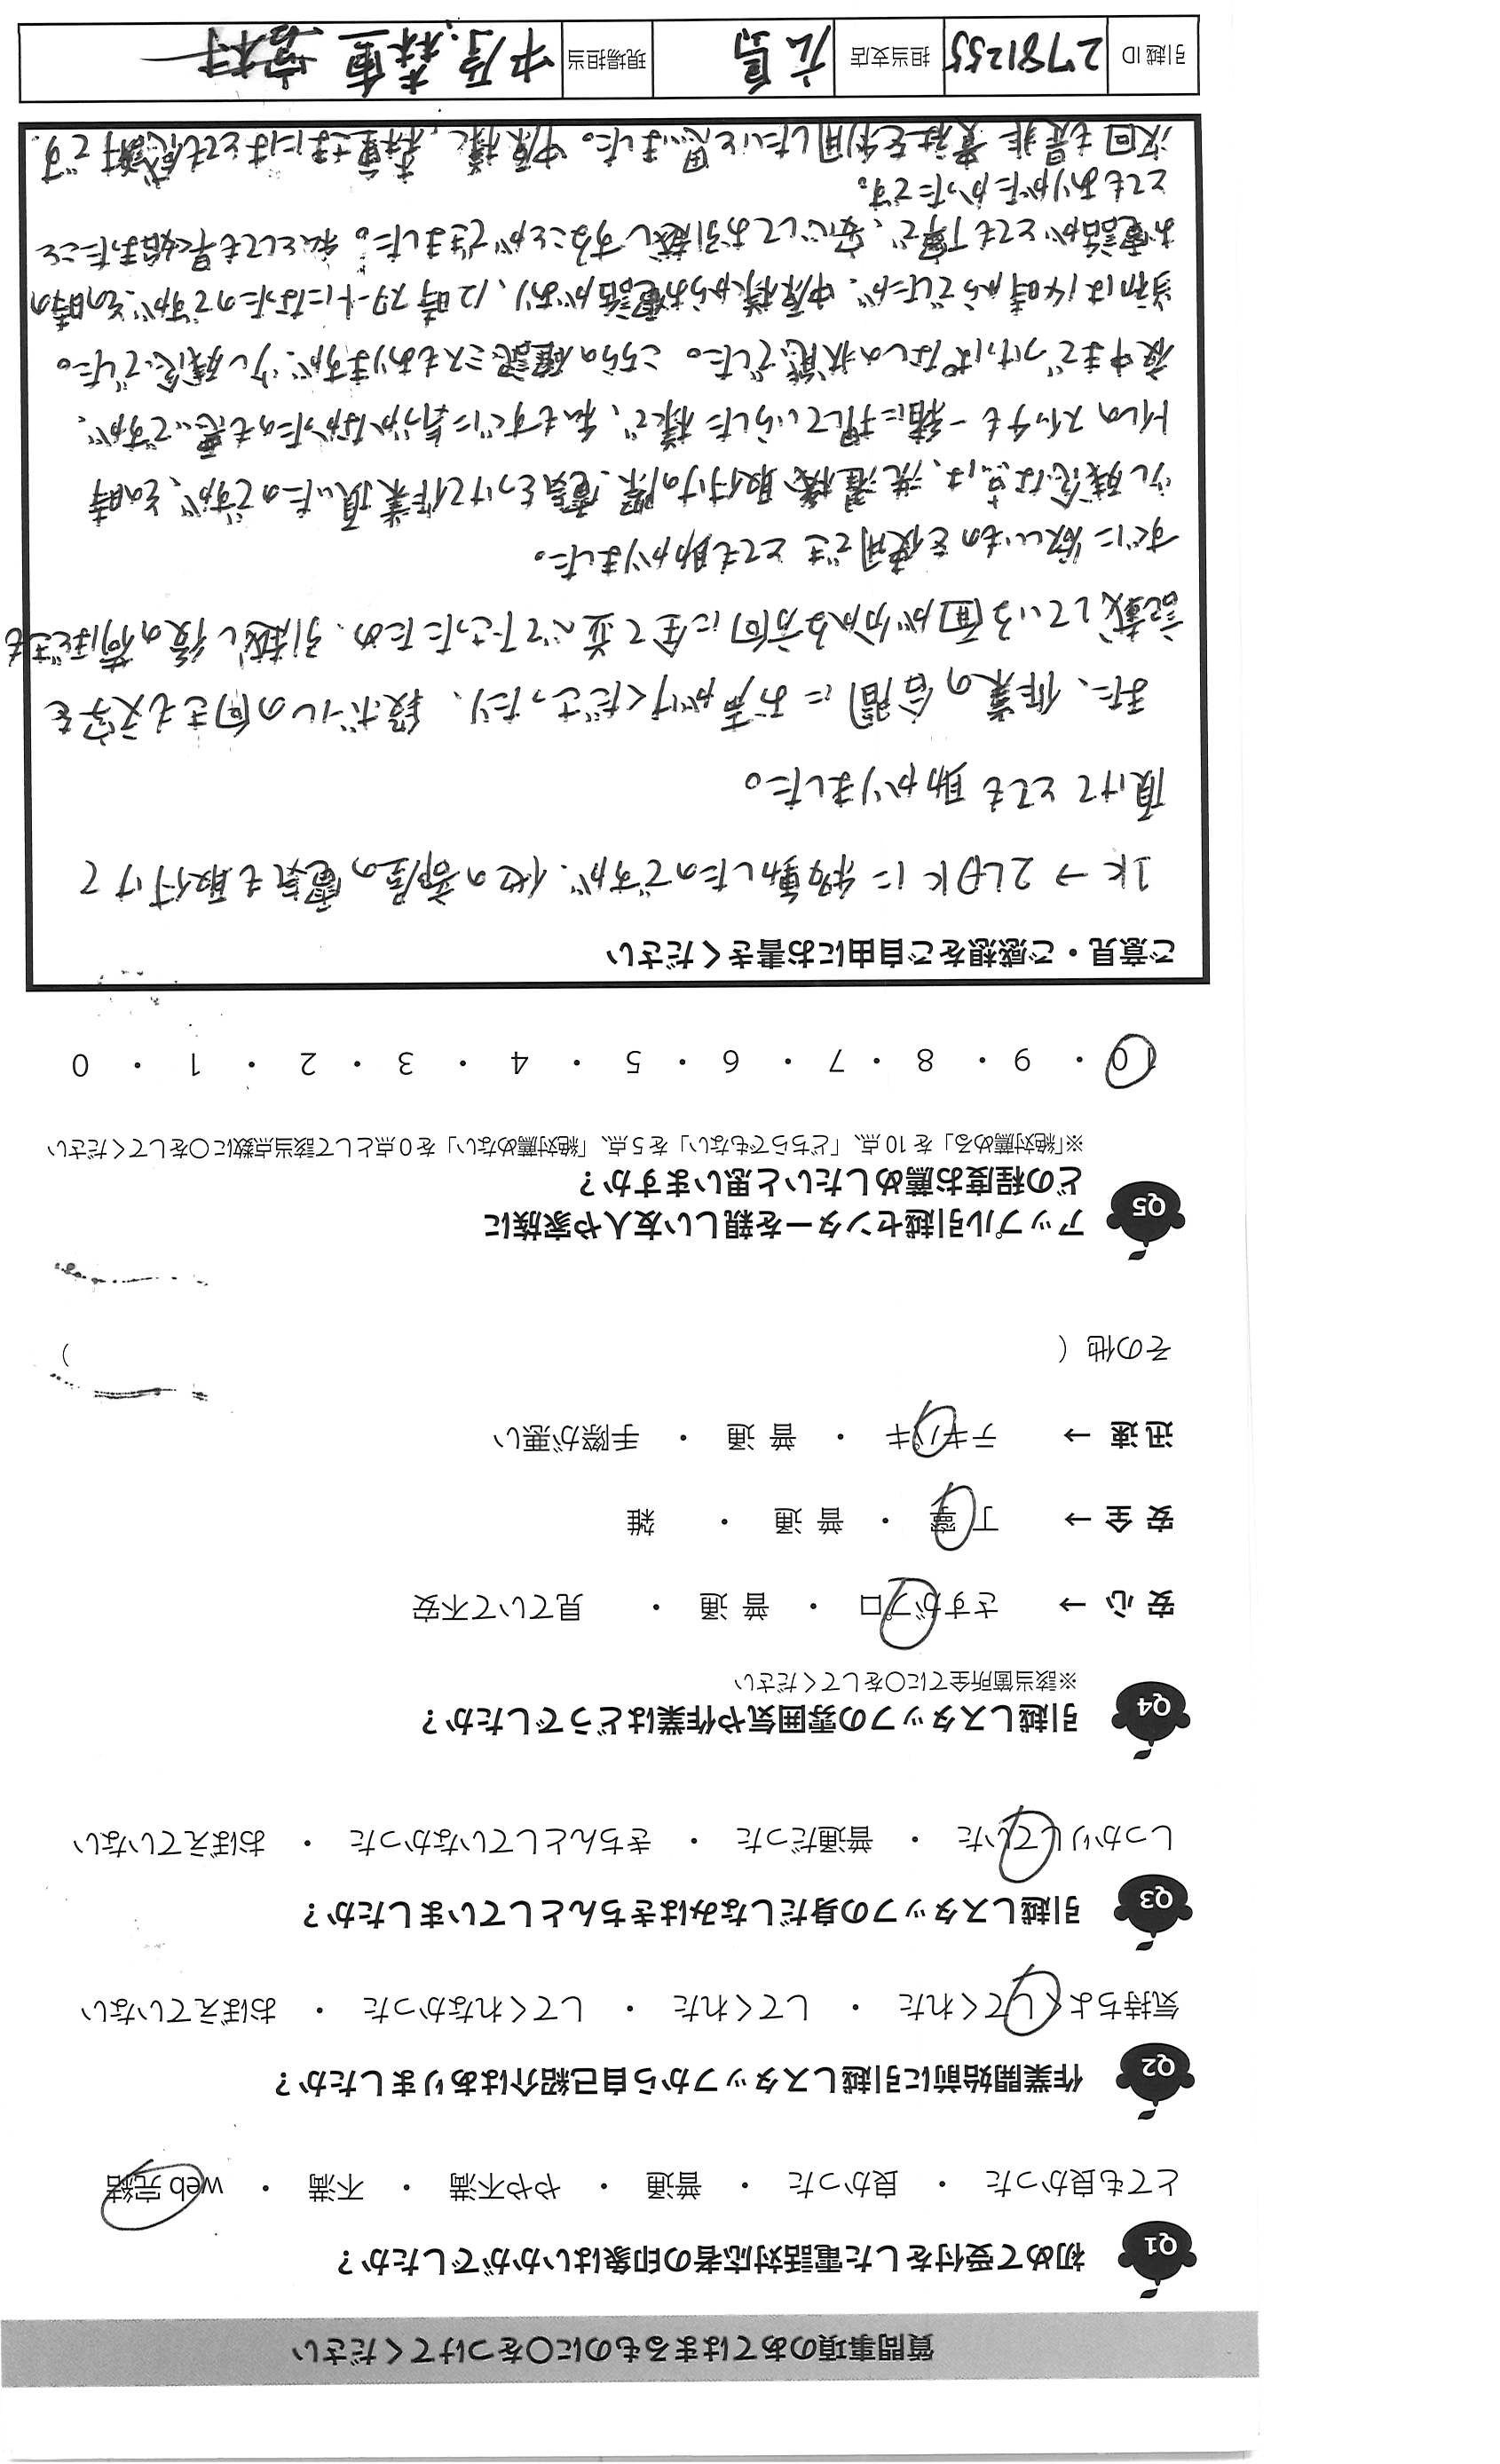 質問事項のあてはまるものに〇をつけてください
Q1 初めて受付をした電話対応者の印象はいかがでしたか？
とても良かった ・ 良かった ・ 普通 ・ やや不満 ・ 不満 ・ web 完結
Q2 作業開始前に引越しスタッフから自己紹介はありましたか？
気持ちよくしてくれた ・ してくれた ・ してくれなかった ・ おぼえていない
Q3 引越しスタッフの身だしなみはきちんとしていましたか？
しっかりしていた ・ 普通だった ・ きちんとしていなかった ・ おぼえていない
Q4 引越しスタッフの雰囲気や作業はどうでしたか？
※該当箇所全てに〇をしてください
安 心 → さすがプロ ・ 普 通 ・ 見ていて不安
安 全 → 丁 寧 ・ 普 通 ・ 雑
迅 速 → テキパキ ・ 普 通 ・ 手際が悪い
その他（ ）
Q5 アップル引越センターを親しい友人や家族に
どの程度お薦めしたいと思いますか？
※「絶対薦める」を 10 点、「どちらでもない」を 5 点、「絶対薦めない」を 0 点として該当点数に〇をしてください
10 ・ 9 ・ 8 ・ 7 ・ 6 ・ 5 ・ 4 ・ 3 ・ 2 ・ 1 ・ 0
ご意見・ご感想をご自由にお書きください
1K → 2LDK に移動したのですが、他の部屋の電気も取付けて
頂けてとても助かりました。
また、作業の合間にお声がけくださったり、段ボールの向きも文字を
記載している面が分かる方向に全て並べて下さったため、引越し後の荷ほどきも
すぐに欲しいものを使用でき とても助かりました。
少し残念な点は、洗濯機取付けの際、電気をつけて作業頂いたのですが、その時
トイレのスイッチも一緒に押していらした様で、私もすぐに気づかなかったのも悪いですが、
夜中までつけっぱなしの状態でした。こちらの確認ミスもありますが、少し残念でした。
当初は14時からでしたが、中原様からお電話があり、12時スタートになったのですが、その時の
お電話がとても丁寧で、安心してお引越しすることができました。私としても早く始まったこと
とてもありがたかったです。
次回も是非貴社を利用したいと思いました。中原様、森重様にはとても感謝です。
引越 ID 2781255 担当支店 広島 現場担当 中原、森重